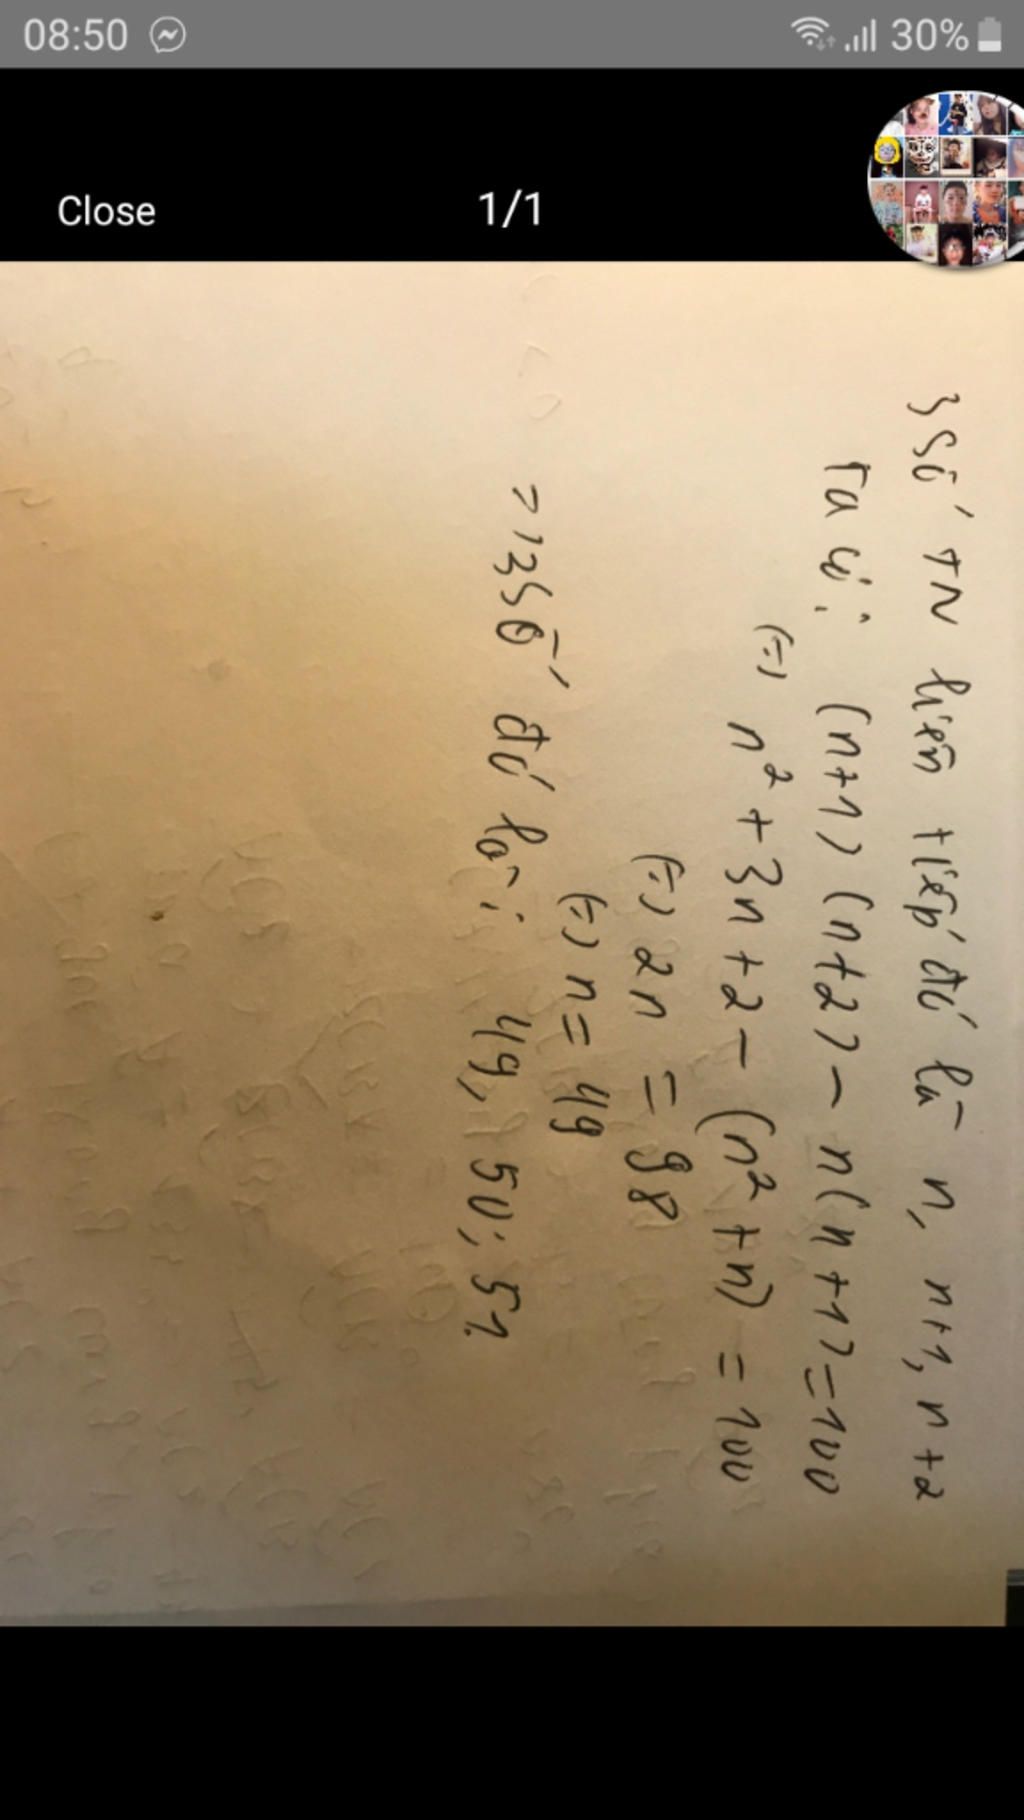 08:50
30%
Close
1/1
3 số TN liên tiếp đó là n, n+1, n+2
Ta có: (n+1) (n+2) - n(n+1) = 100
(=) n² + 3n + 2 - (n² + n) = 100
(=) 2n = 98
(=) n = 49
=> 3 số đó là: 49, 50; 51